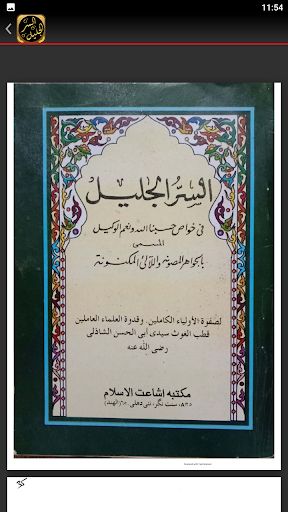 11:54
السر الجليل
السِرُّ الجَليل
في خواص حسبنا الله ونعم الوكيل
المسمى
بالجواهر المصونه واللآلئ المكنونة
لصفوة الأولياء الكاملين. وقدوة العلماء العاملين
قطب الغوث سيدى ابى الحسن الشاذلى
رضى الله عنه
مكتبه اشاعت الاسلام
سنت نگر، نئى دهلى (الهند)